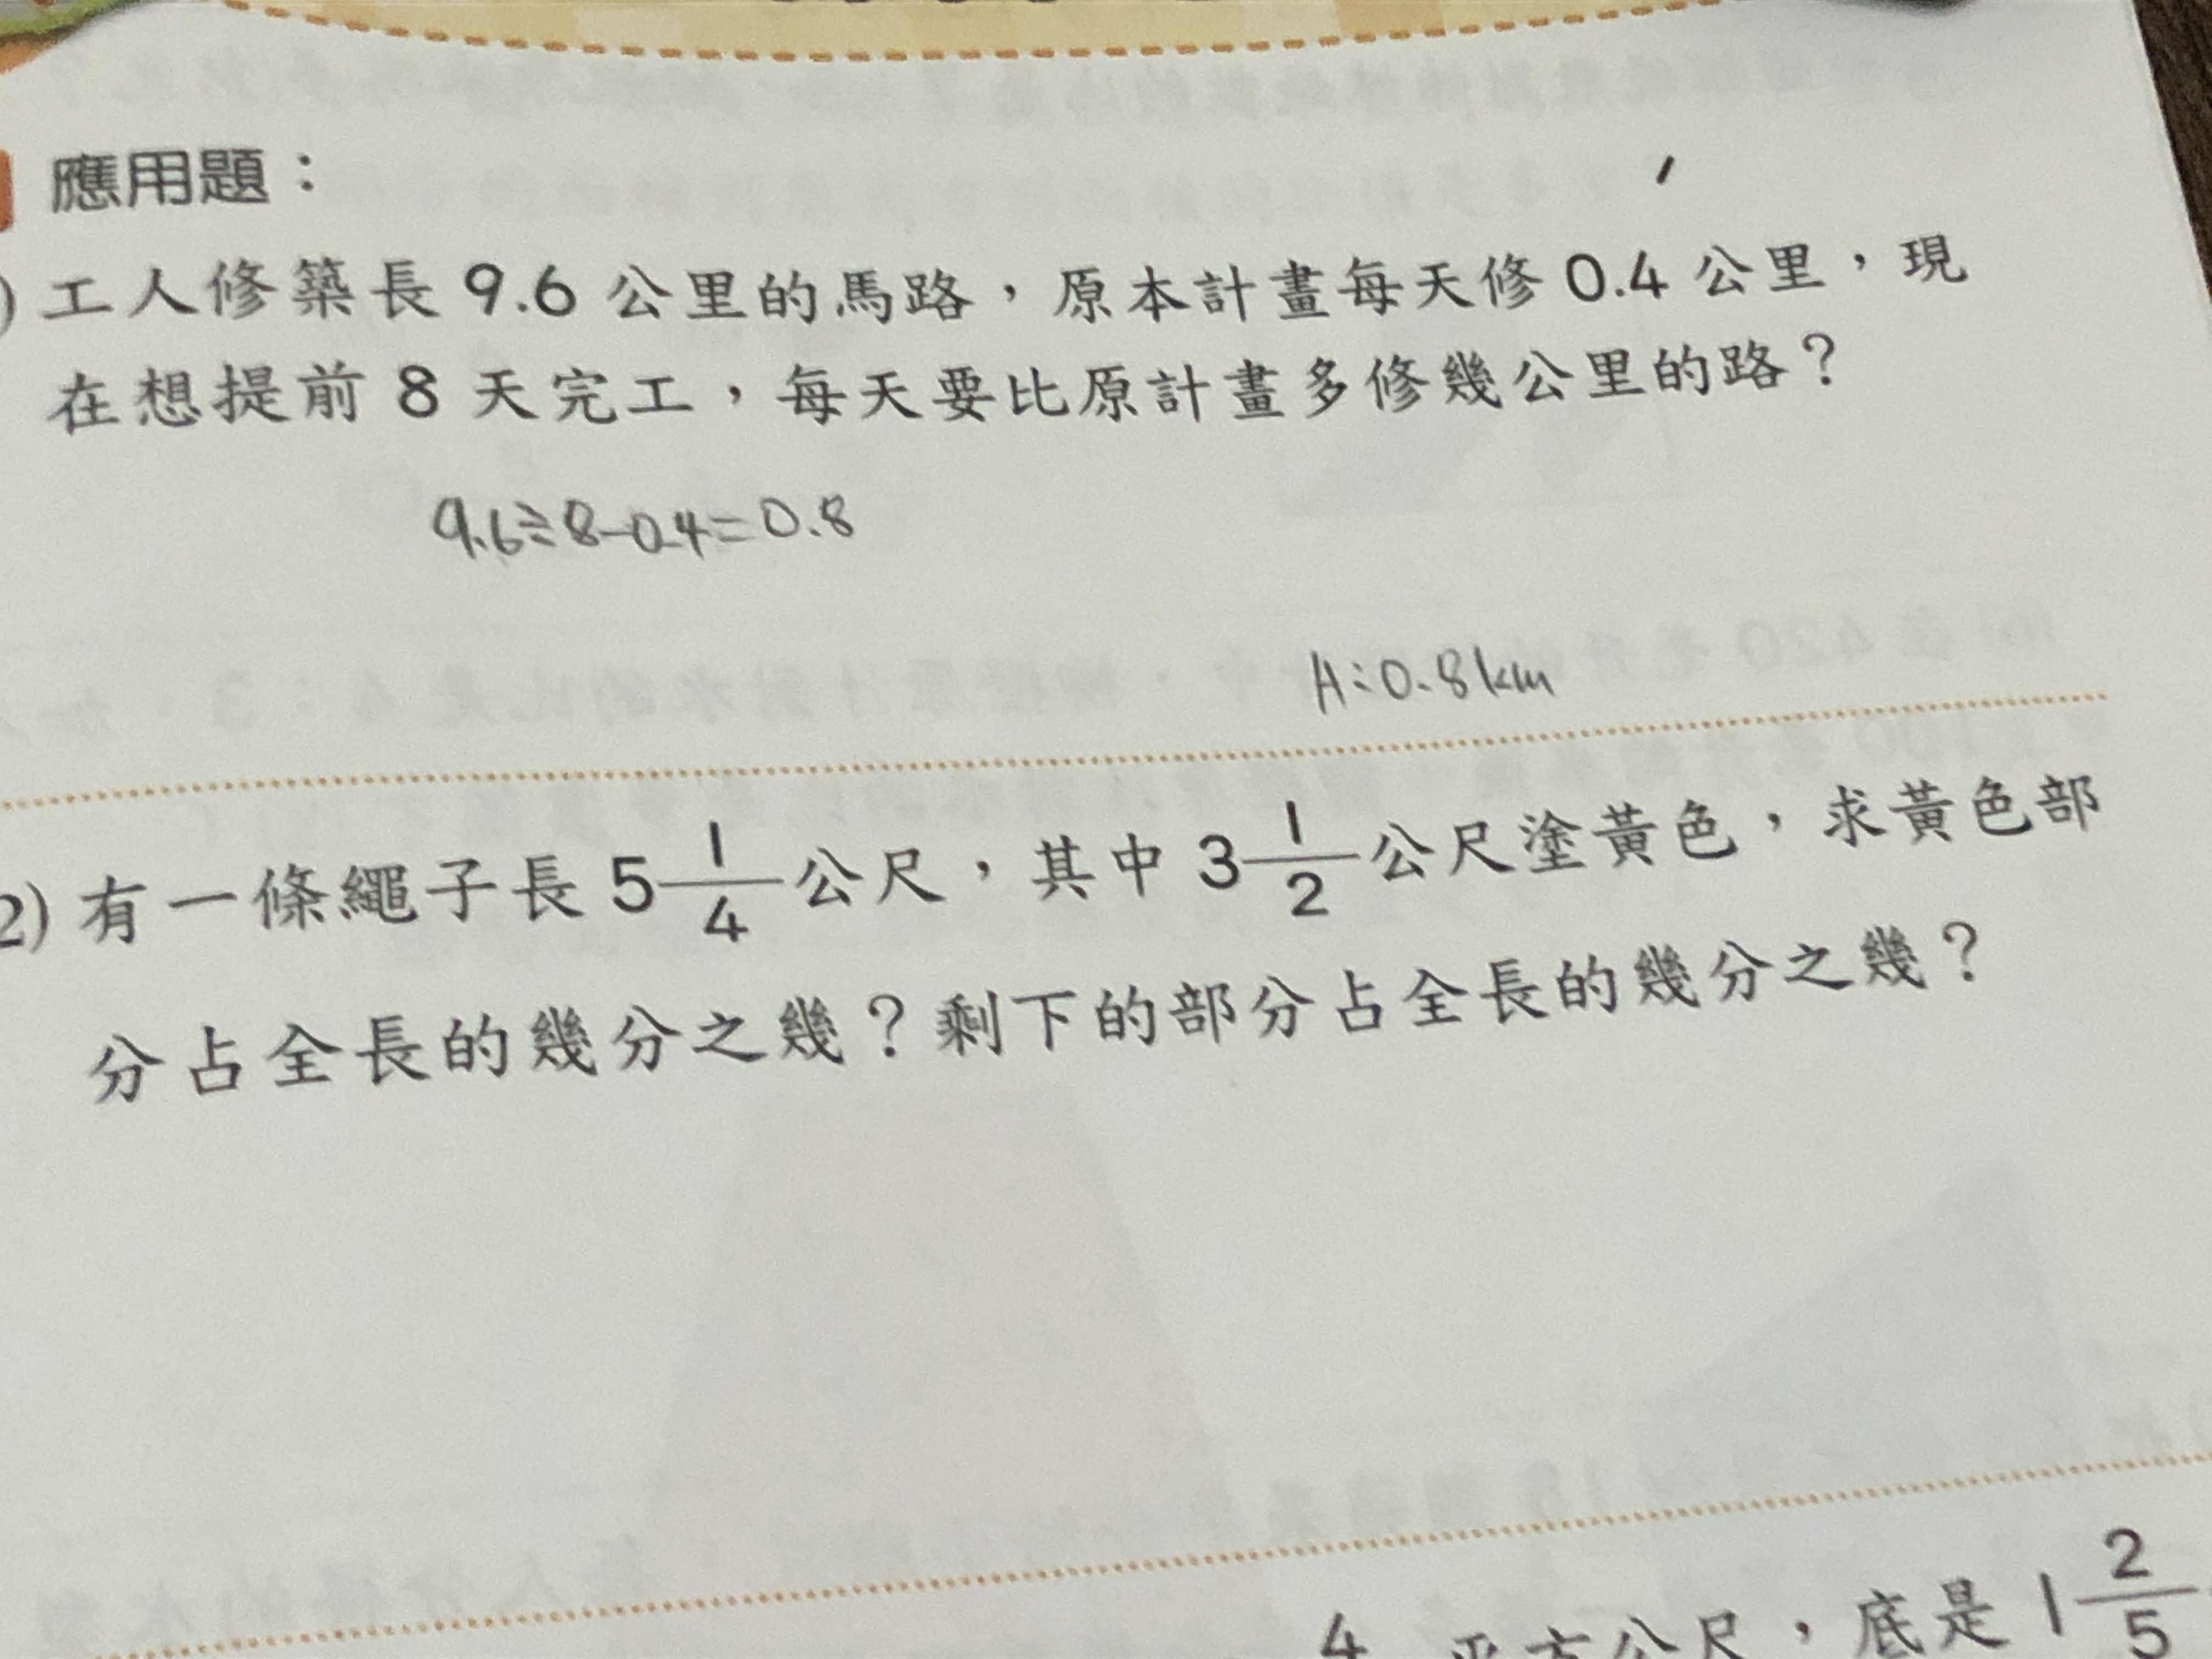 應用題：
工人修築長 9.6 公里的馬路，原本計畫每天修 0.4 公里，現
在想提前 8 天完工，每天要比原計畫多修幾公里的路？
9.6÷8-0.4=0.8
A:0.8km
2) 有一條繩子長 5 1/4 公尺，其中 3 1/2 公尺塗黃色，求黃色部
分占全長的幾分之幾？剩下的部分占全長的幾分之幾？
4 平方公尺，底是 1 2/5